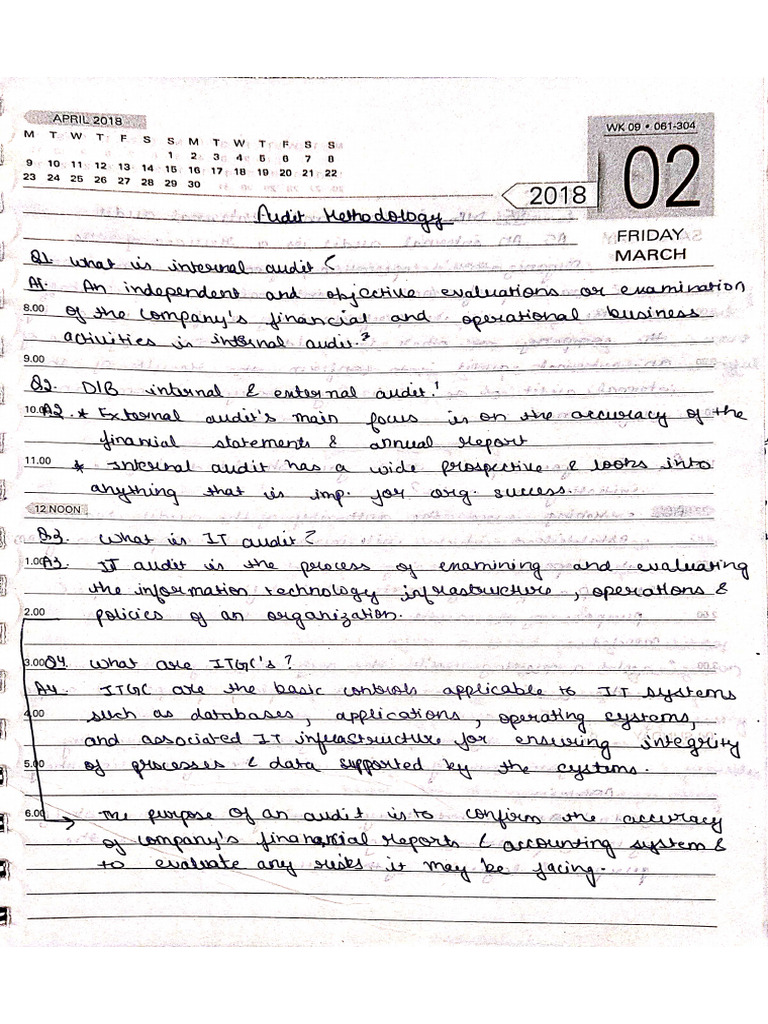 APRIL 2018
M T W T F S S M T W T F S S
1 2 3 4 5 6 7 8
9 10 11 12 13 14 15 16 17 18 19 20 21 22
23 24 25 26 27 28 29 30
WK 09 • 061-304
02
2018
FRIDAY
MARCH
Audit Methodology
Q1. What is internal audit?
A1. An independent and objective evaluations or examination
8.00 of the company's financial and operational business
activities is internal audit.
9.00
Q2. D/B internal & external audit.
10.00 A2. * External audit's main focus is on the accuracy of the
financial statements & annual report
11.00 * Internal audit has a wide prospective & looks into
anything that is imp. for org. success.
12 NOON
Q3. What is IT audit?
1.00 A3. IT audit is the process of examining and evaluating
the information technology infrastructure, operations &
2.00 policies of an organization.
3.00 Q4. What are ITGC's?
A4. ITGC are the basic controls applicable to IT systems
4.00 such as databases, applications, operating systems,
and associated IT infrastructure for ensuring integrity
5.00 of processes & data supported by the systems.
6.00 → The purpose of an audit is to confirm the accuracy
of company's financial reports & accounting system &
to evaluate any risks it may be facing.